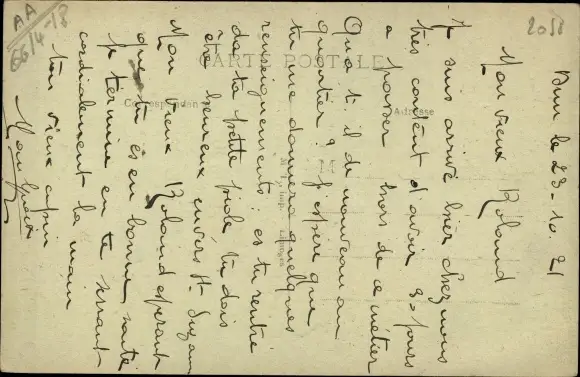 AA
66/4-18
2058
CARTE POSTALE
Correspondance
Adresse
Imp.
Limoges
le 23-10-21
Mon vieux Roland
Je suis arrivé hier chez nous
très content d'avoir 3 jours
a passer hors de ce métier
Qua t. il de nouveau au
quartier ? J'espère que
tu me donnera quelques
renseignements : es tu rentré
da ta petite piole tu dois
etre heureux envers St.
Mon vieux Roland espérant
que tu es en bonne santé
Je termine en te serrant
cordialement la main
ton vieux copin